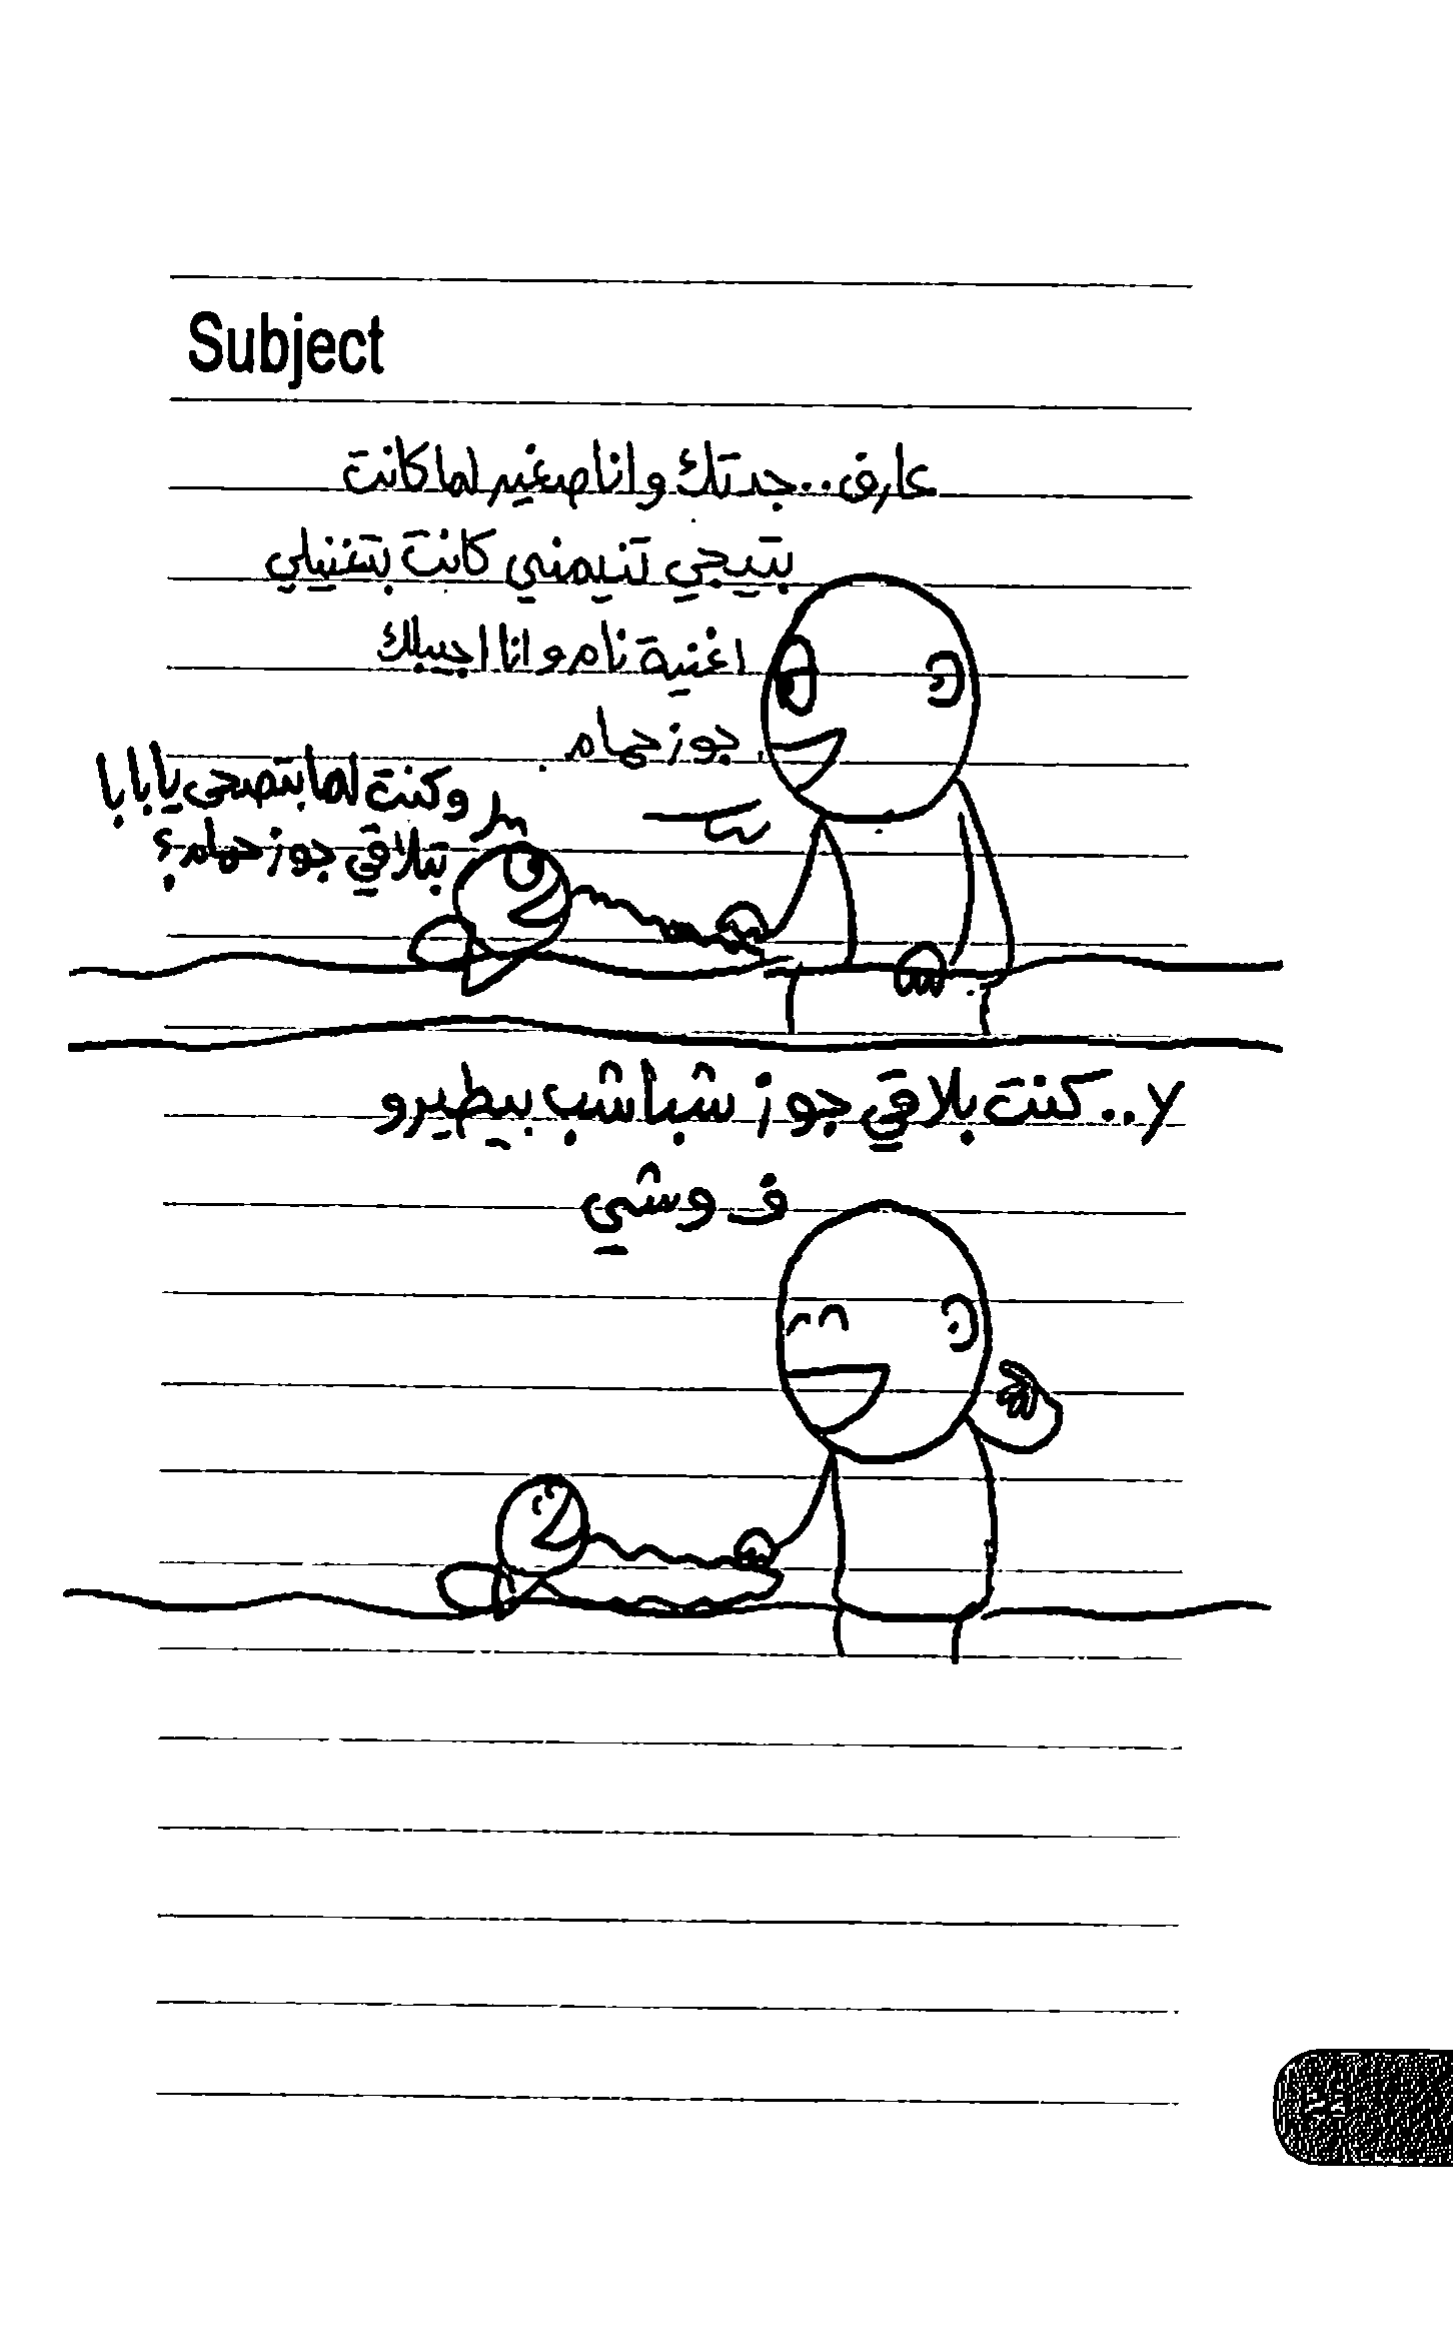 Subject
عارف..جدتك وانا صغير لما كانت
بتيجي تنيمني كانت بتغنيلي
اغنية نام وانا اجيبلك
جوز حمام.
وكنت لما بتصحى يا بابا
تبلاقي جوز حمام؟
لا..كنت بلاقي جوز شباشب بيطيرو
ف وشي